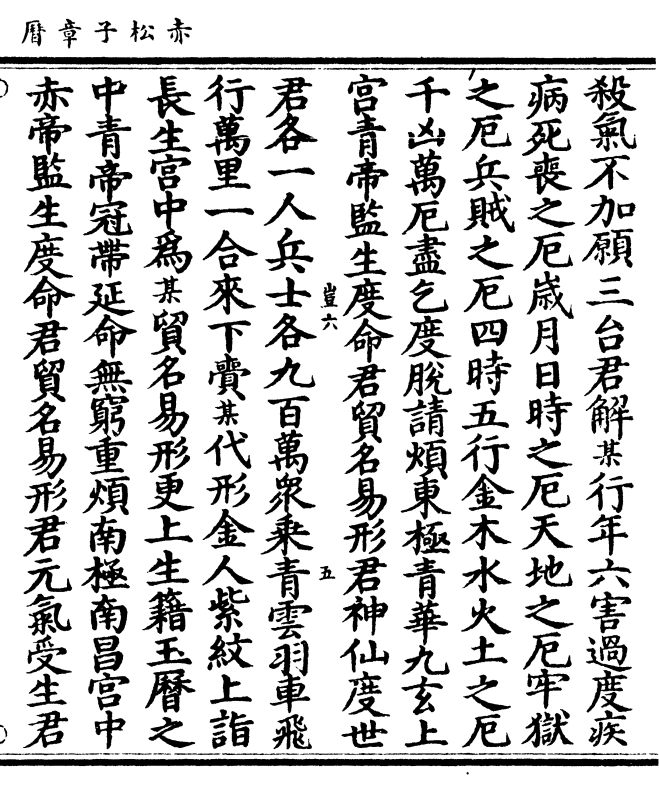 赤松子章曆
殺氣不加願三台君解某行年六害過度疾
病死喪之厄歲月日時之厄天地之厄牢獄
之厄兵賊之厄四時五行金木水火土之厄
千凶萬厄盡乞度脫請煩東極青華九玄上
宮青帝監生度命君貿名易形君神仙度世
豈六
五
君各一人兵士各九百萬衆乘青雲羽車飛
行萬里一合來下賷某代形金人紫紋上詣
長生宮中爲某貿名易形更上生籍玉曆之
中青帝冠帶延命無窮重煩南極南昌宮中
赤帝監生度命君貿名易形君元氣受生君